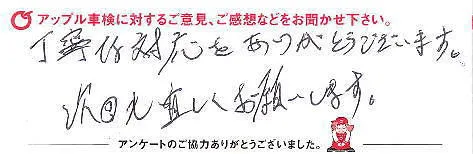 アップル車検に対するご意見、ご感想などをお聞かせ下さい。
丁寧な対応をありがとうございます。
次回も宜しくお願いします。
アンケートのご協力ありがとうございました。